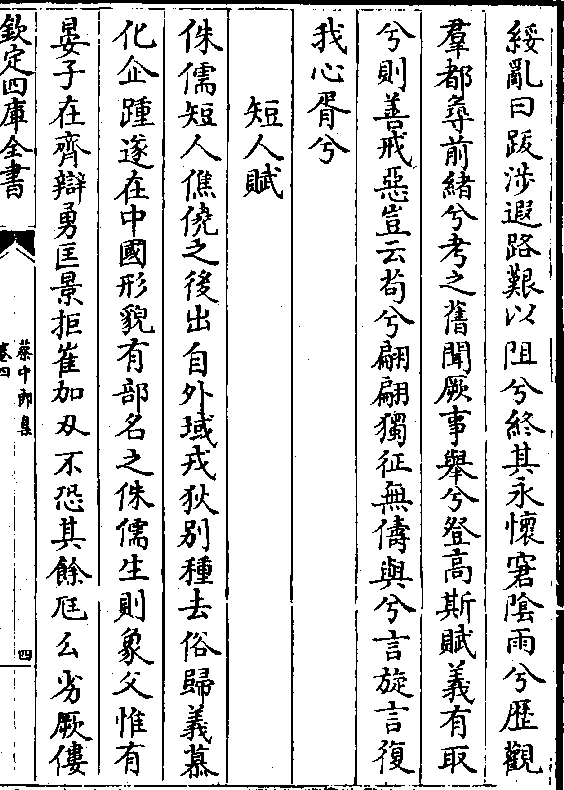 綏亂曰跋涉遐路艱以阻兮終其永懷窘隂雨兮歴觀
羣都尋前緒兮考之舊聞厥事舉兮登高斯賦義有取
兮則善戒惡豈云苟兮翩翩獨征無儔與兮言旋言復
我心胥兮
短人賦
侏儒短人僬僥之後出自外域戎狄别種去俗歸義慕
化企踵遂在中國形貌有部名之侏儒生則象父惟有
晏子在齊辯勇匡景拒崔加刄不恐其餘尫么劣厥僂
欽定四庫全書
蔡中郎集
卷四
四